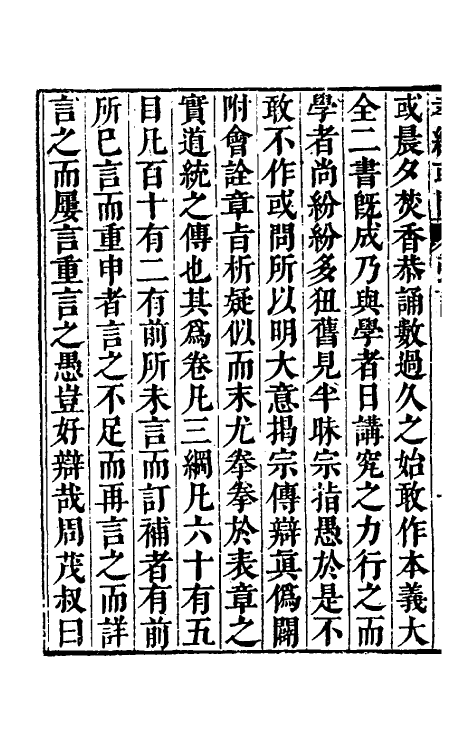 或晨夕焚香恭誦數過久之始敢作本義大
全二書旣成乃與學者日講究之力行之而
學者尚紛紛多狃舊見半昧宗指愚於是不
敢不作或問所以明大意揭宗傳辯眞僞闢
附會詮章旨析疑似而末尤拳拳於表章之
實道統之傳也其爲卷凡三綱凡六十有五
目凡百十有二有前所未言而訂補者有前
所已言而重申者言之不足而再言之而詳
言之而屢言重言之愚豈好辯哉周茂叔曰